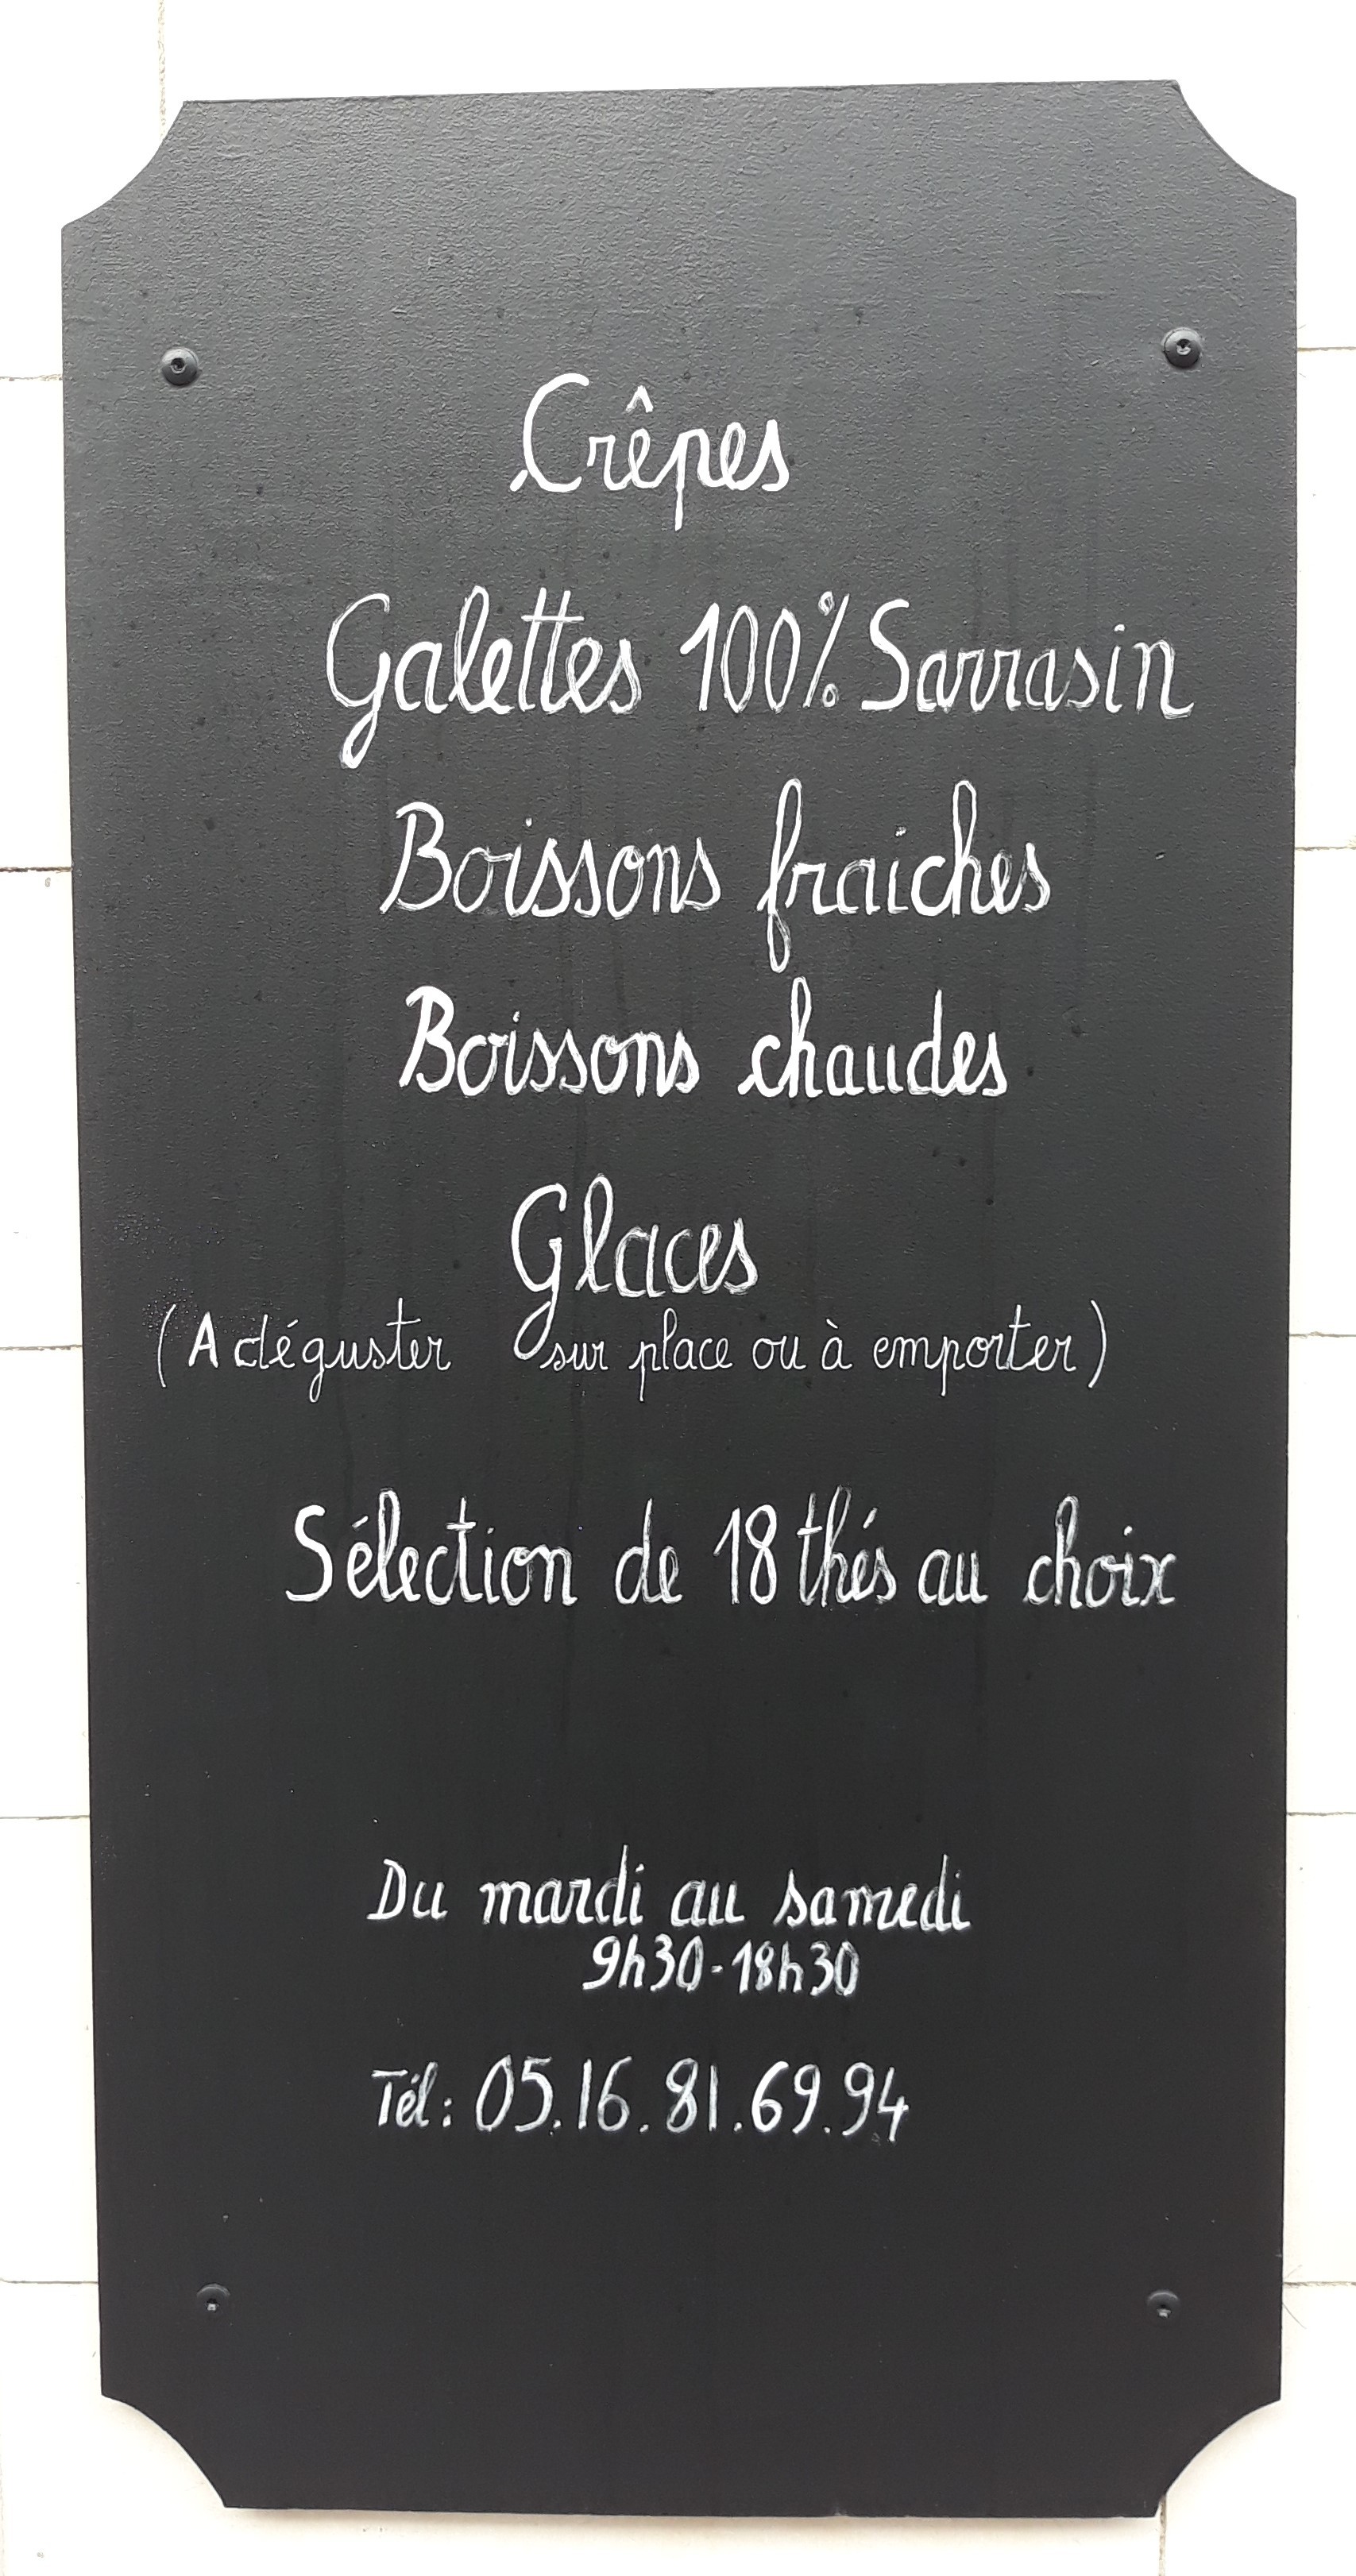 Crêpes
Galettes 100% Sarrasin
Boissons fraiches
Boissons chaudes
Glaces
(A déguster sur place ou à emporter)
Sélection de 18 thés au choix
Du mardi au samedi
9h30-18h30
Tél: 05.16.81.69.94